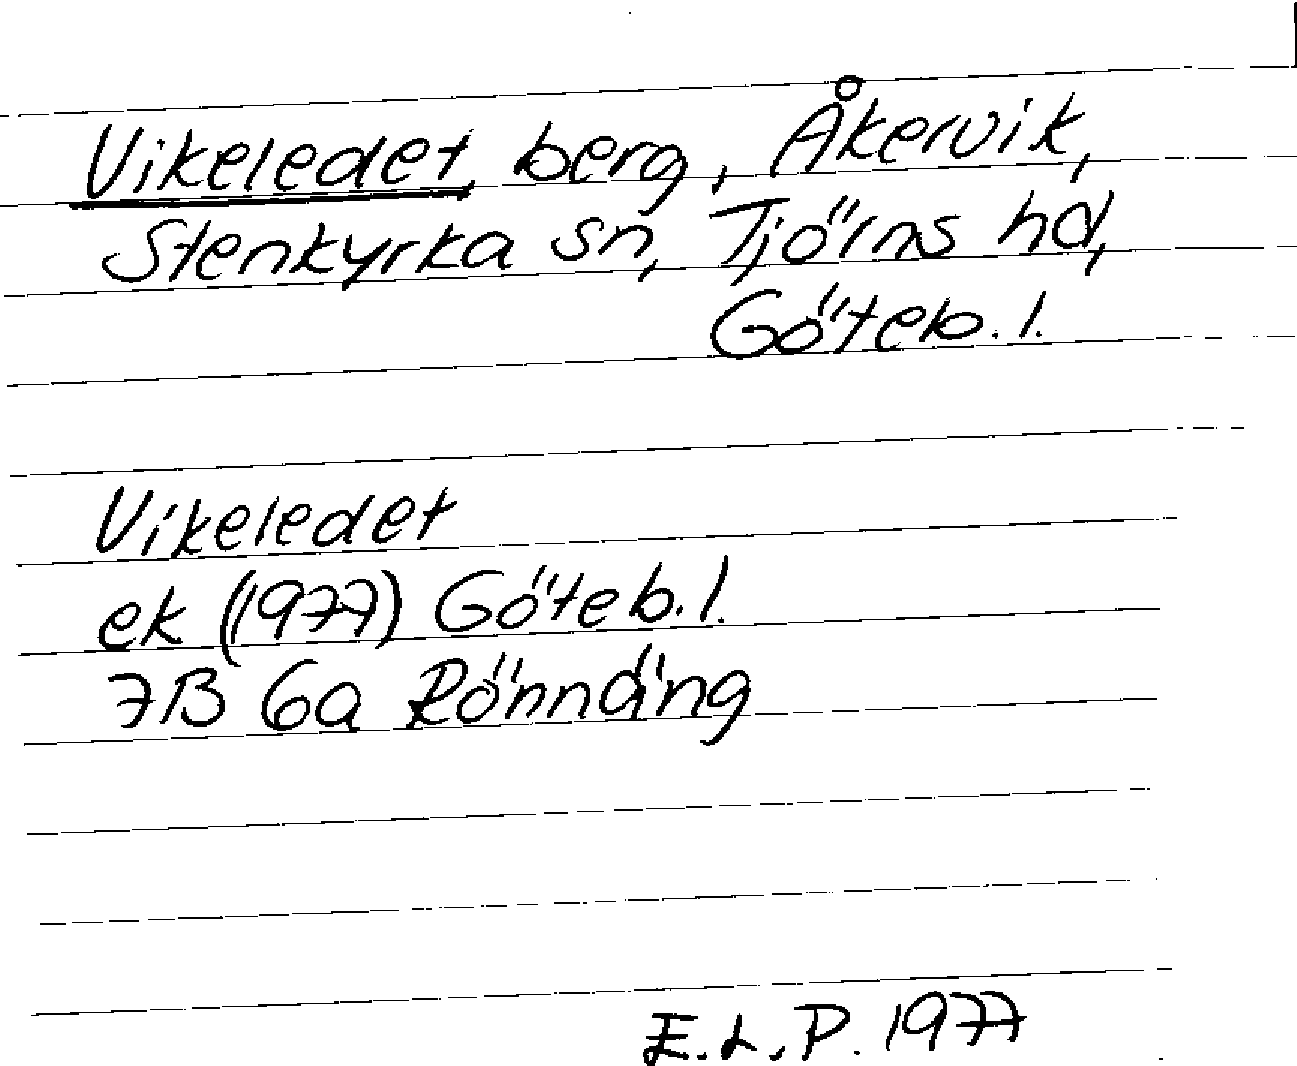 Vikeledet, berg, Åkervik,
Stenkyrka sn, Tjörns hd,
Göteb. l.
Vikeledet
ek (1977) Göteb. l.
7B 6a Rönnäng
E.L.P. 1977